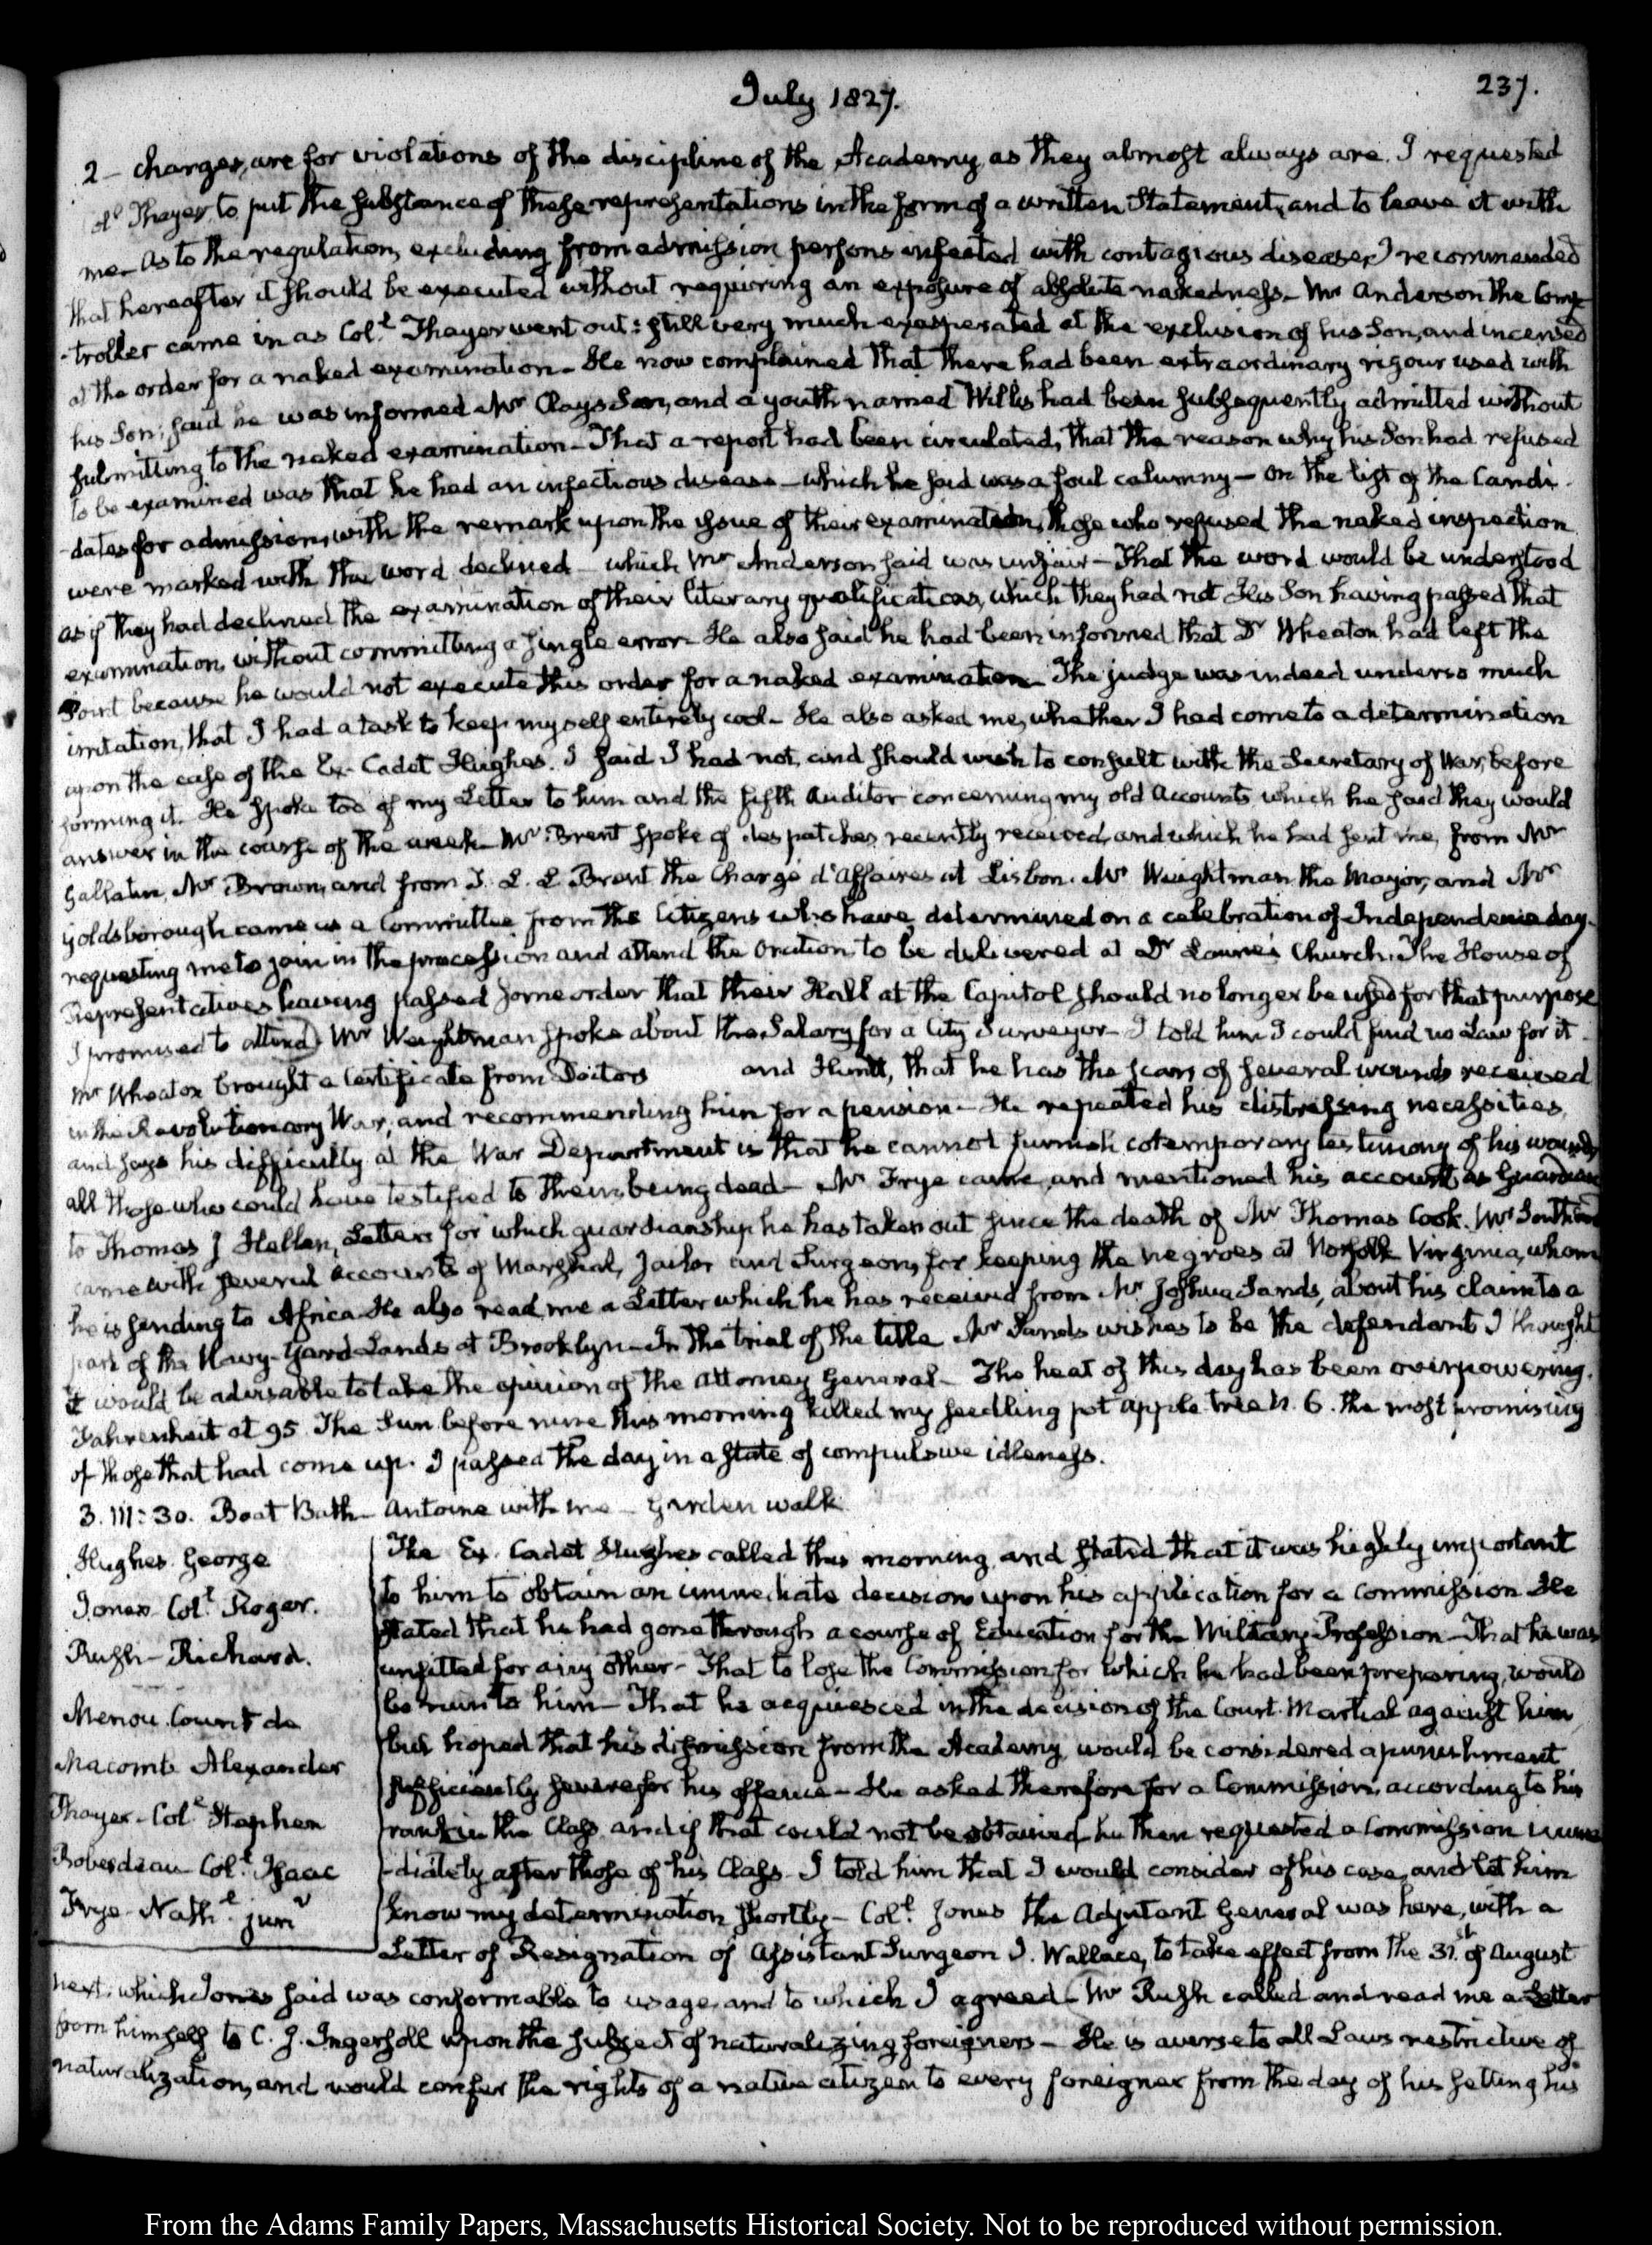 July 1827.
237.
2 – charges, are for violations of the discipline of the Academy, as they almost always are. I requested
Colt. Thayer, to put the substance of these representations in the form of a written Statement, and to leave it with
me – As to the regulation, excluding from admission persons infected with contagious diseases, I recommended
that hereafter it should be executed without requiring an exposure of absolute nakedness – Mr Anderson the Comp
-troller came in as Colt. Thayer went out: still very much exasperated at the exclusion of his Son, and incensed
at the order for a naked examination – He now complained that there had been extraordinary rigour used with
his Son; said he was informed Mr Clays Son, and a youth named Willis had been subsequently admitted without
submitting to the naked examination – That a report had been circulated, that the reason why his Son had refused
to be examined was that he had an infectious disease – which he said was a foul calumny – On the list of the Candi-
-dates for admission, with the remark upon the issue of their examination, those who refused the naked inspection
were marked with the word declined – which Mr Anderson said was unfair – That the word would be understood
as if they had declined the examination of their literary qualifications, which they had not His Son having passed that
examination, without committing a single error – He also said he had been informed that Dr Wheaton had left the
Point because he would not execute this order for a naked examination – The judge was indeed under so much
irritation, that I had a task to keep myself entirely cool – He also asked me, whether I had come to a determination
upon the case of the Ex-Cadet Hughes. I said I had not, and should wish to consult with the Secretary of War, before
forming it. He spoke too of my Letter to him and the fifth Auditor concerning my old Accounts which he said they would
answer in the course of the week – Mr Brent spoke of despatches, recently received, and which he had sent me, from Mr
Gallatin, Mr Brown, and from T. L. L. Brent the Chargé d'Affaires at Lisbon. Mr Weightman the Mayor, and Mr
Goldsborough came as a Committee from the Citizens who have determined on a celebration of Independence day.
requesting me to join in the procession and attend the Oration, to be delivered at Dr Laurie's Church. The House of
Representatives having passed some order that their Hall at the Capitol should no longer be used for that purpose
I promised to attend. Mr Weightman spoke about the Salary for a City Surveyor – I told him I could find no Law for it –
Mr Wheaton brought a Certificate from Doctors and Huntt, that he has the scars of several wounds received
in the Revolutionary War, and recommending him for a pension – He repeated his distressing necessities,
and says his difficulty at the War Department is that he cannot furnish cotemporary testimony of his wounds
all those who could have testified to them, being dead – Mr Frye came, and mentioned his account, as Guardian
to Thomas J Hellen, Letters for which guardianship he has taken out since the death of Mr Thomas Cook. Mr Southard
came with several accounts of Marshal, Jailor and Surgeon, for keeping the negroes at Norfolk Virginia, whom
he is sending to Africa. He also read me a Letter which he has received from Mr Joshua Sands, about his claim to a
part of the Navy-Yard Lands at Brooklyn – In the trial of the title Mr Sands wishes to be the defendant. I thought
it would be advisable to take the opinion of the Attorney General – The heat of this day has been overpowering.
Fahrenheit at 95. The Sun before nine this morning killed my seedling pot apple tree N. 6. the most promising
of those that had come up. I passed the day in a state of compulsive idleness.
3. III:30. Boat Bath – Antoine with me – Garden walk.
Hughes. George
Jones Colt. Roger.
Rush – Richard.
Menou. Count de
Macomb Alexander
Thayer – Colt Stephen
Roberdeau Colt. Isaac
Frye – Nathl. junr
The Ex. Cadet Hughes called this morning, and stated that it was highly important
to him to obtain an immediate decision upon his application for a commission He
stated that he had gone through a course of Education for the Military Profession – That he was
unfitted for any other – That to lose the Commission for which he had been preparing, would
be ruin to him – That he acquiesced in the decision of the Court-Martial against him
but hoped that his dismission from the Academy, would be considered a punishment
sufficiently severe for his offence – He asked therefore for a Commission, according to his
rank in the Class, and if that could not be obtained, he then requested a Commission imme
-diately after those of his Class. I told him that I would consider of his case, and let him
know my determination shortly – Colt. Jones the Adjutant General was here, with a
Letter of Resignation of Assistant Surgeon J. Wallace, to take effect from the 31st of August
next: which Jones said was conformable to usage, and to which I agreed – Mr Rush called and read me a Letter
from himself to C. J. Ingersoll upon the subject of naturalizing foreigners – He is averse to all Laws restrictive of
naturalization, and would confer the rights of a native citizen to every foreigner from the day of his setting his
From the Adams Family Papers, Massachusetts Historical Society. Not to be reproduced without permission.